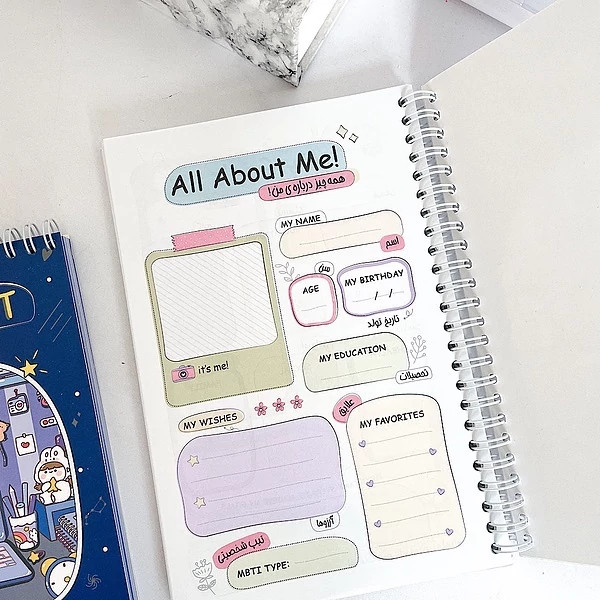 All About Me!
همه چیز درباره‌ی من!
MY NAME
اسم
سن
AGE
MY BIRTHDAY
/ /
تاریخ تولد
it's me!
MY EDUCATION
تحصیلات
MY WISHES
علایق
MY FAVORITES
آرزوها
تیپ شخصیتی
MBTI TYPE:
T